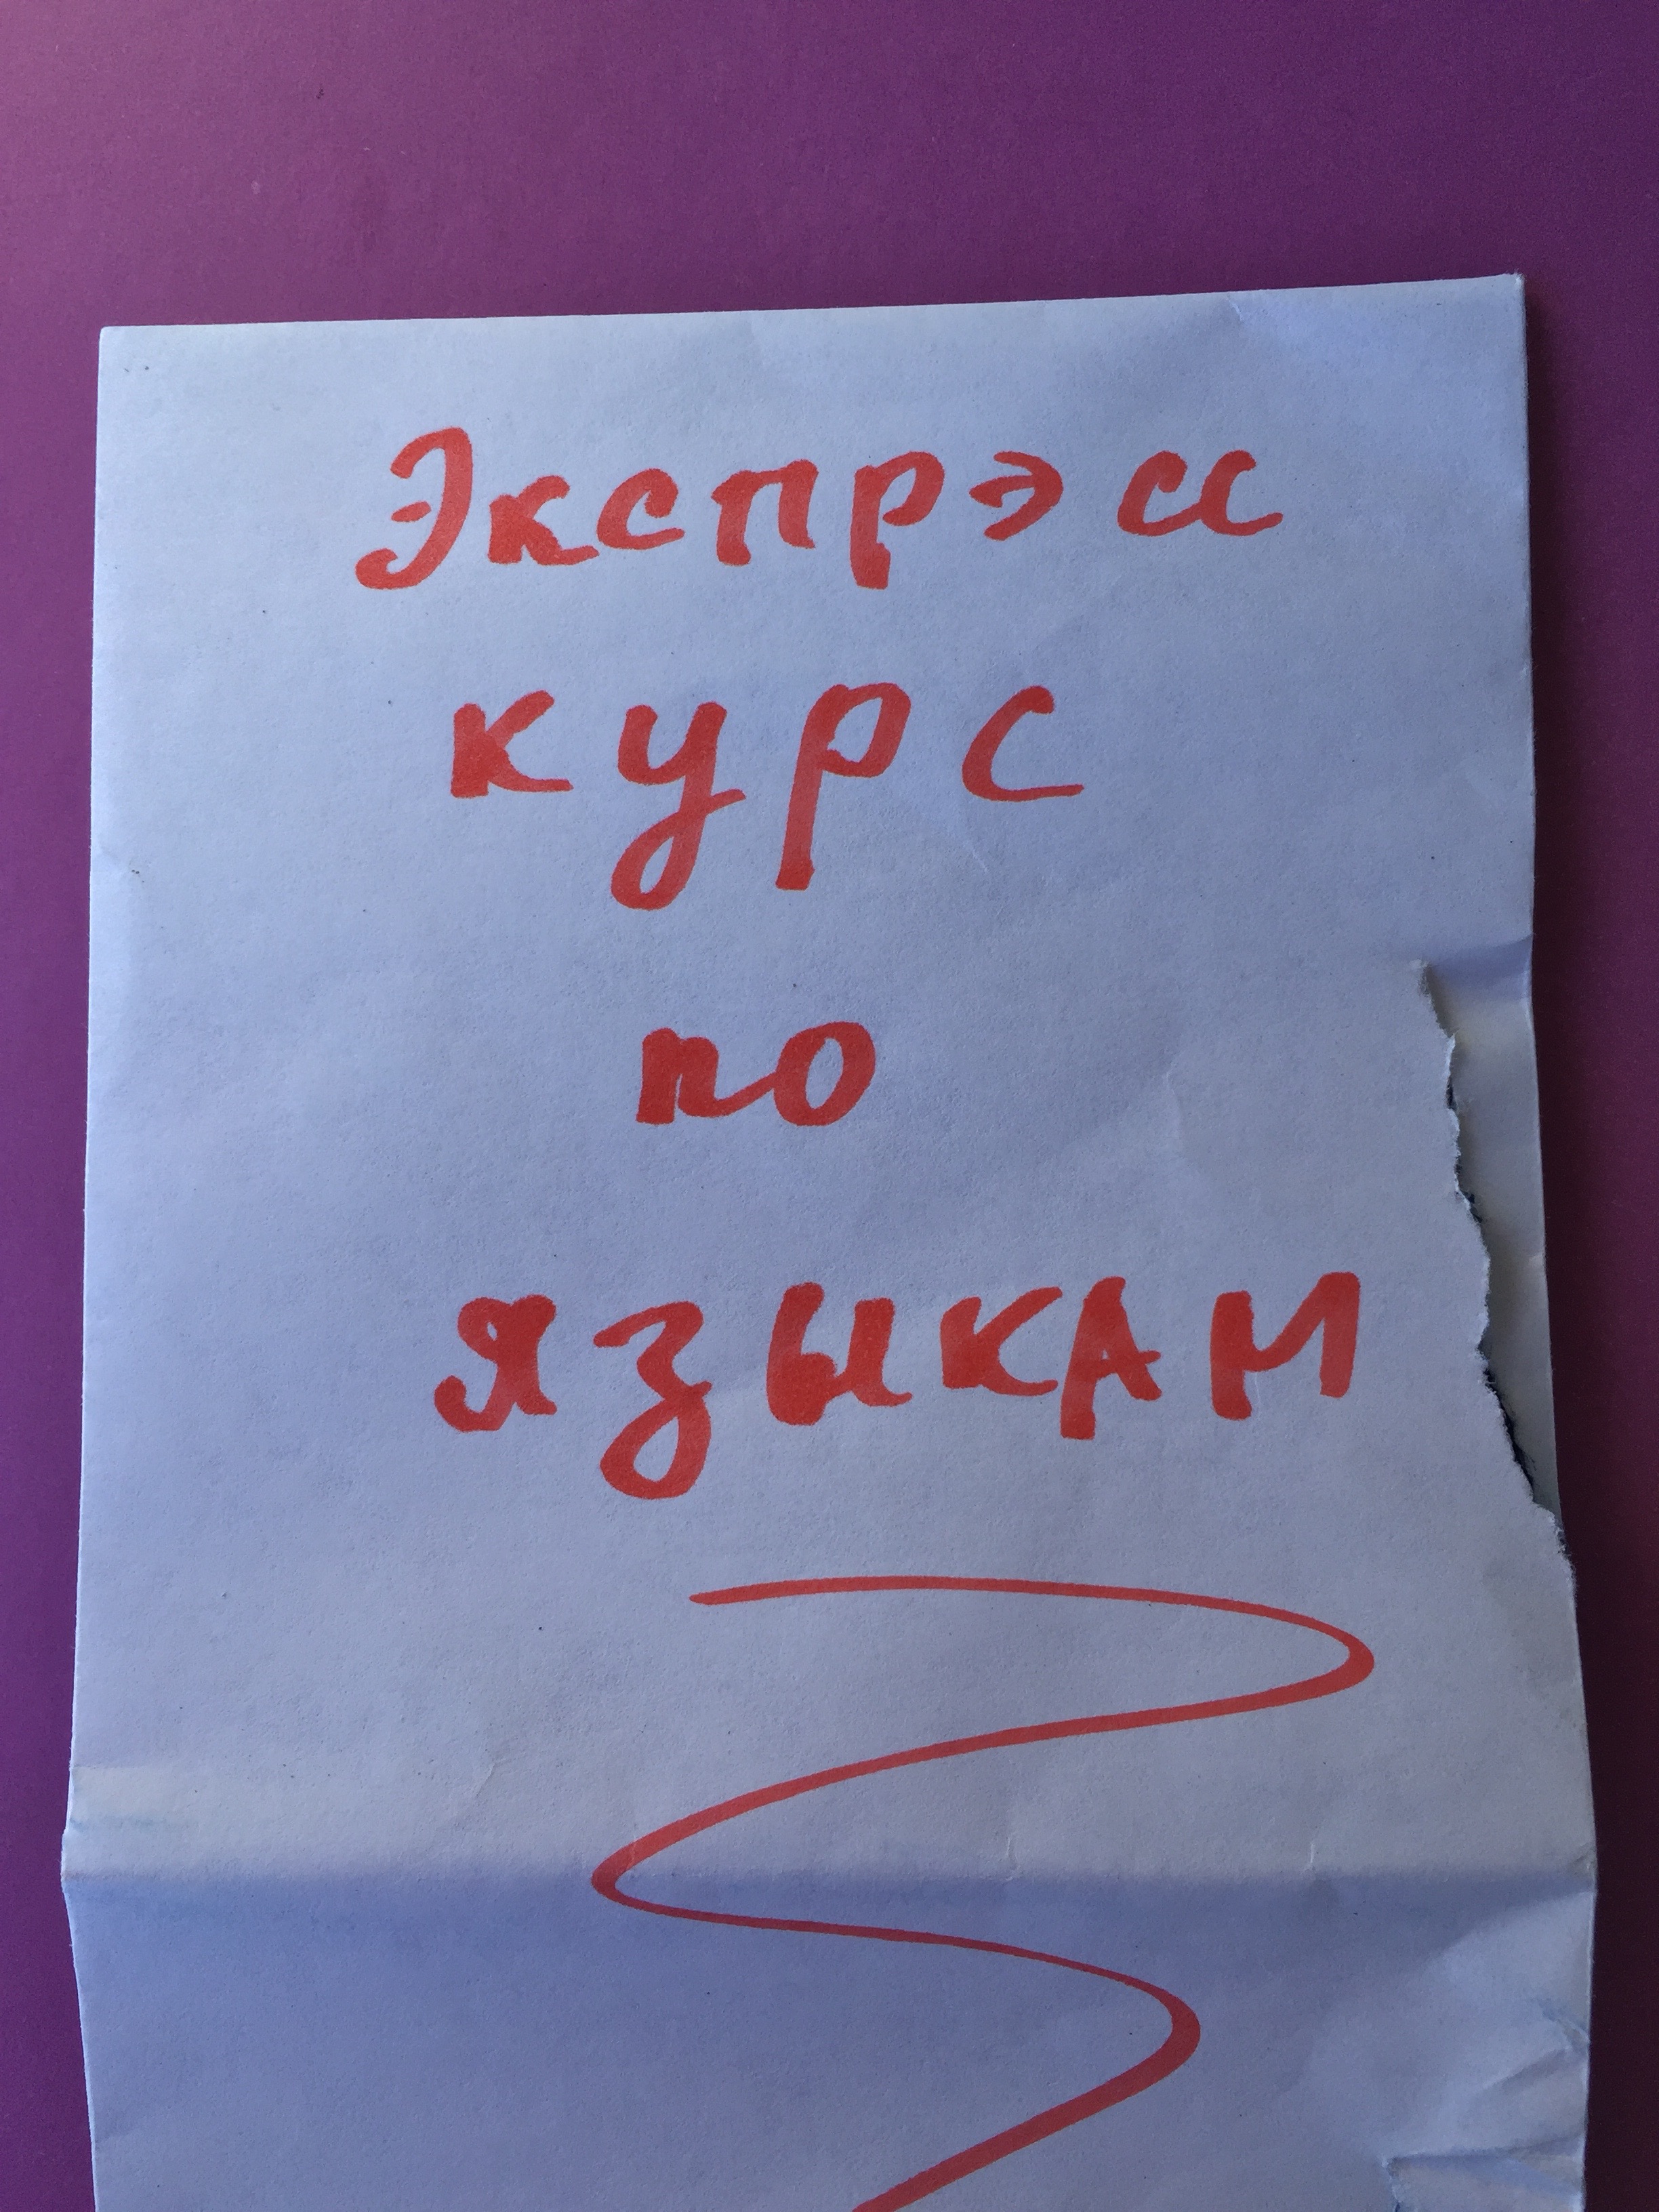 Экспрэсс
курс
по
языкам